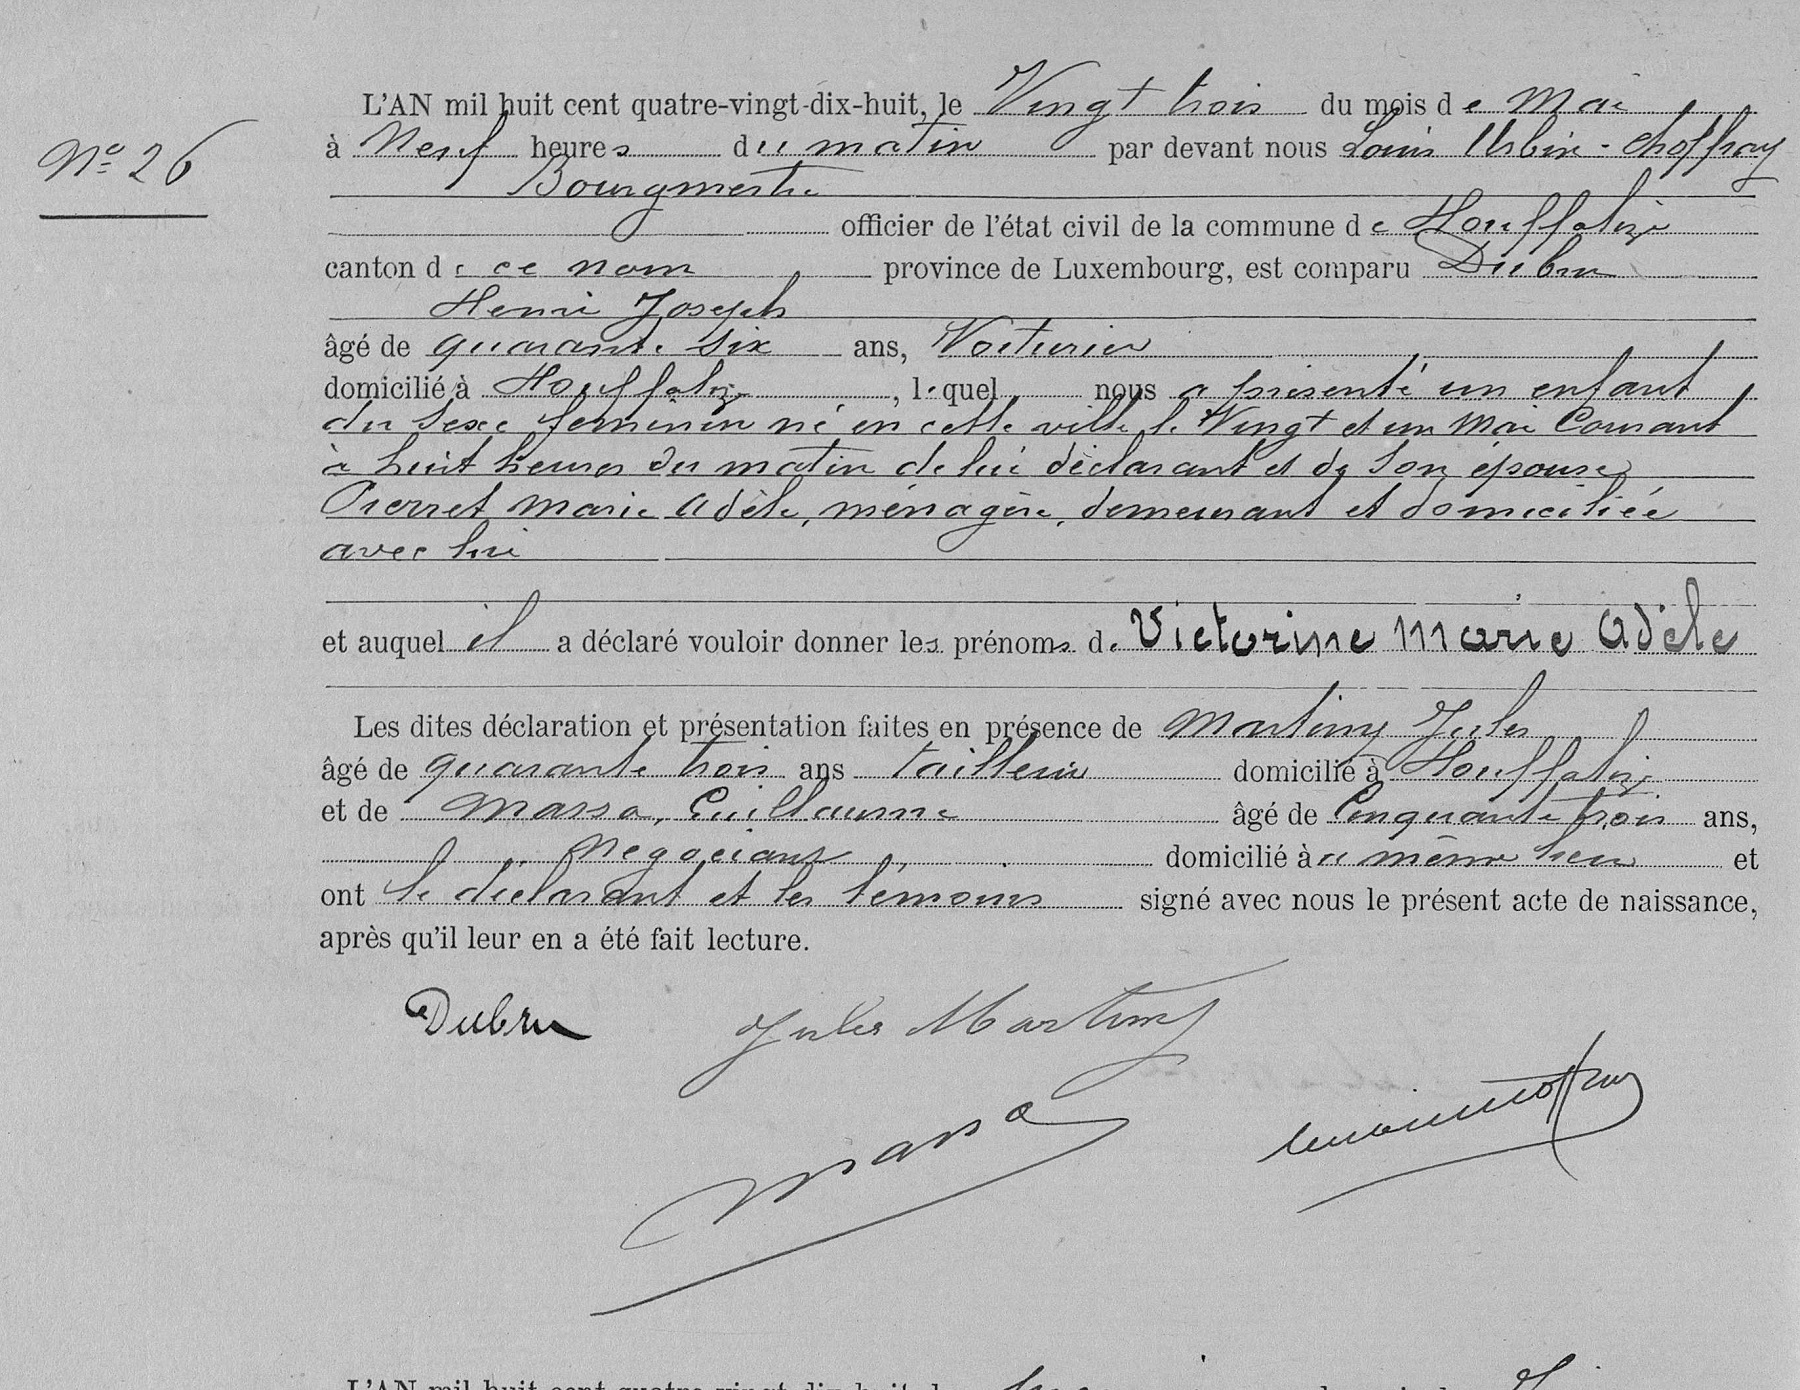 L'AN mil huit cent quatre-vingt-dix-huit, le Vingt trois du mois de Mai
Nº 26
à Neuf heures du matin par devant nous Louis Urbin-Choffray
Bourgmestre
officier de l'état civil de la commune de Houffalize
canton de ce nom province de Luxembourg, est comparu Dubru
Henri Joseph
âgé de quarante six ans, Voiturier
domicilié à Houffalize, lequel nous a présenté un enfant
du sexe féminin né en cette ville le Vingt et un Mai Courant
à huit heures du matin de lui déclarant et de son épouse
Pierret Marie Adèle, ménagère, demeurant et domiciliée
avec lui
et auquel il a déclaré vouloir donner les prénoms de Victorine Marie Adèle
Les dites déclaration et présentation faites en présence de Martiny Jules
âgé de quarante trois ans tailleur domicilié à Houffalize
et de Massa, Guillaume âgé de Cinquante trois ans,
Négociant domicilié à u même lieu et
ont le déclarant et les témoins signé avec nous le présent acte de naissance,
après qu'il leur en a été fait lecture.
Dubru Jules Martiny
Massa
L'AN mil huit cent quatre-vingt-dix-huit, le